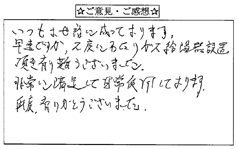 ☆ご意見・ご感想☆
いつもお世話に成っております。
早速ですが、2度にわたりガス給湯器設置
頂き有難うございました。
非常に満足して 致しております。
再度、有りがとうございました。